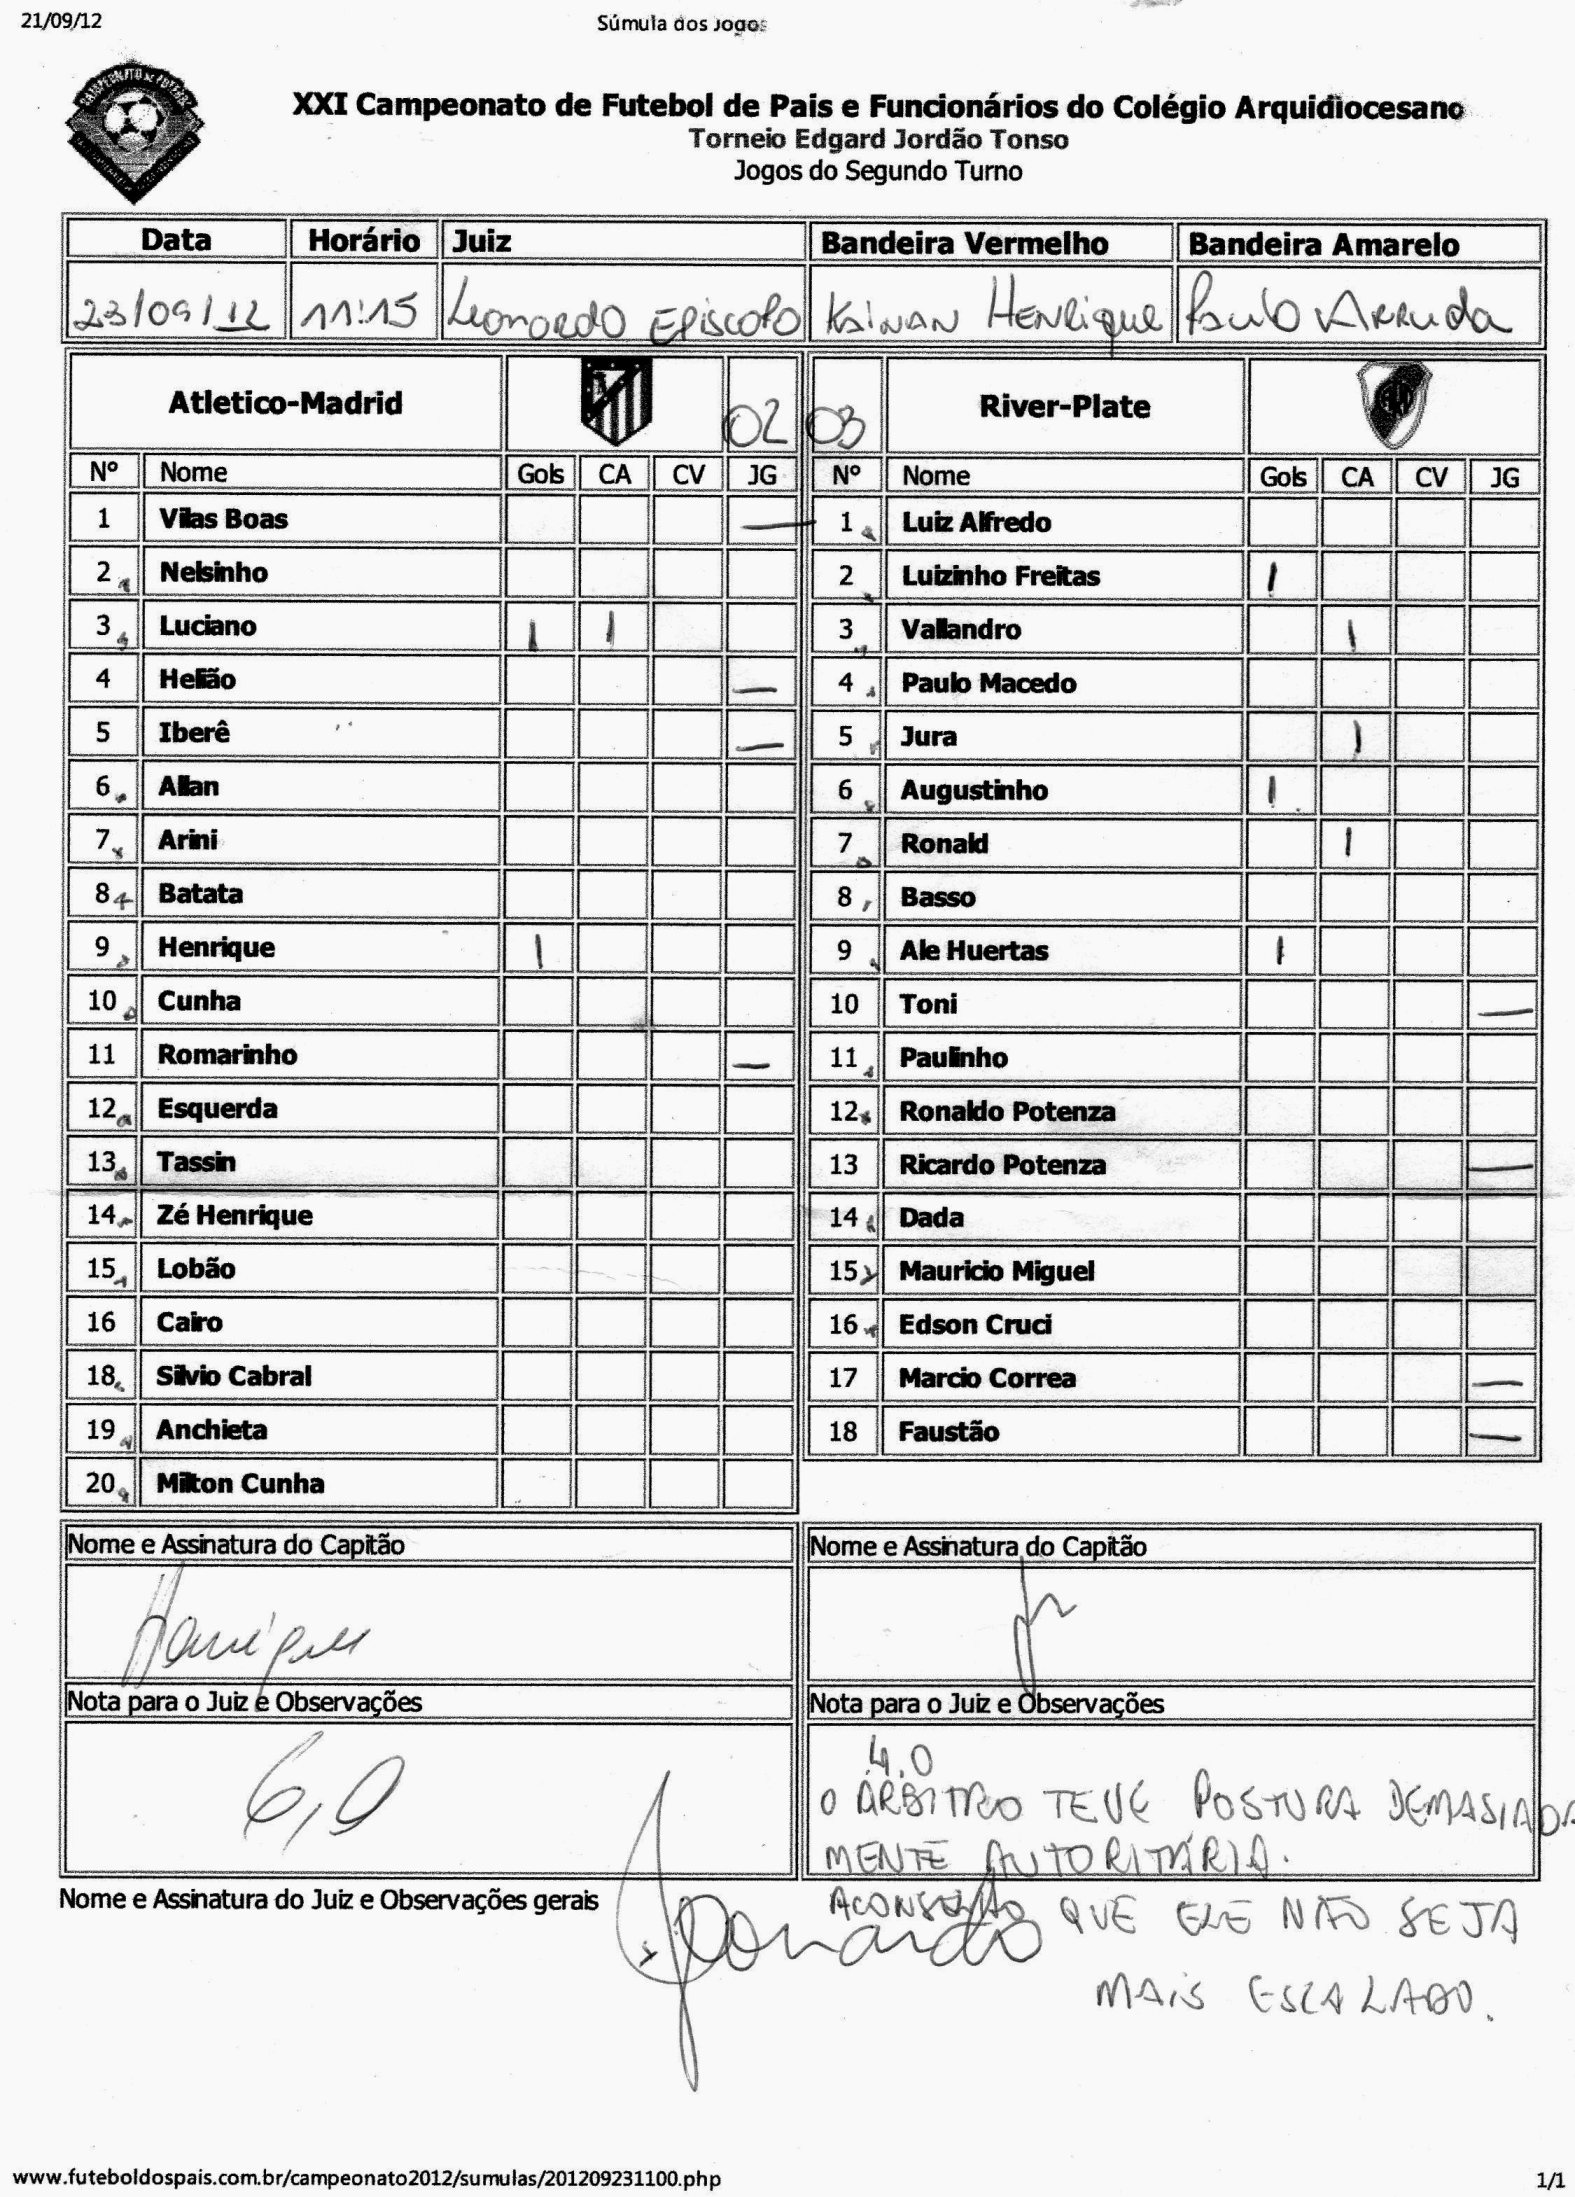 21/09/12 Súmula dos Jogos
XXI Campeonato de Futebol de Pais e Funcionários do Colégio Arquidiocesano
Torneio Edgard Jordão Tonso
Jogos do Segundo Turno
Data Horário Juiz Bandeira Vermelho Bandeira Amarelo
23/09/12 11:15 Leonardo EPISCOPO KAINAN HENRIQUE PAULO ARRUDA
Atletico-Madrid 02 03 River-Plate
Nº Nome Gols CA CV JG Nº Nome Gols CA CV JG
1 Vilas Boas — 1 Luiz Alfredo
2 Nelsinho 2 Luizinho Freitas 1
3 Luciano 1 1 3 Vallandro 1
4 Helião — 4 Paulo Macedo
5 Iberê — 5 Jura 1
6 Allan 6 Augustinho 1
7 Arini 7 Ronald 1
8 Batata 8 Basso
9 Henrique 1 9 Ale Huertas 1
10 Cunha 10 Toni —
11 Romarinho — 11 Paulinho
12 Esquerda 12 Ronaldo Potenza
13 Tassin 13 Ricardo Potenza —
14 Zé Henrique 14 Dada
15 Lobão 15 Mauricio Miguel
16 Cairo 16 Edson Cruci
18 Silvio Cabral 17 Marcio Correa —
19 Anchieta 18 Faustão —
20 Milton Cunha
Nome e Assinatura do Capitão Nome e Assinatura do Capitão
Henrique
Nota para o Juiz e Observações Nota para o Juiz e Observações
6,0 4.0
O ÁRBITRO TEVE POSTURA DEMASIADA
MENTE AUTORITÁRIA.
Nome e Assinatura do Juiz e Observações gerais
Leonardo ACONSELHO QUE ELE NÃO SEJA
MAIS ESCALADO.
www.futeboldospais.com.br/campeonato2012/sumulas/201209231100.php 1/1